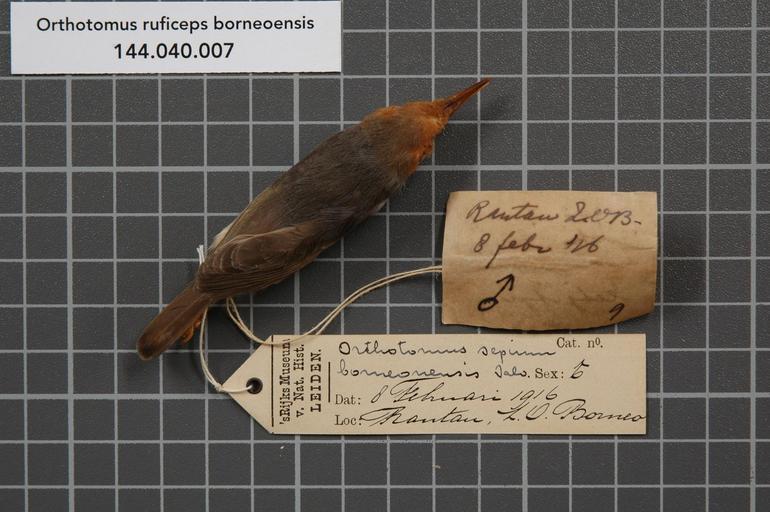 Orthotomus ruficeps borneoensis
144.040.007
Rantau Z.O.B.
8 febr 16
♂
9
'sRijks Museum
v. Nat. Hist.
LEIDEN.
Cat. nº.
Orthotomus sepium
borneonensis Salv. Sex: ♂
Dat: 8 Februari 1916
Loc: Rantau, Z.O. Borneo